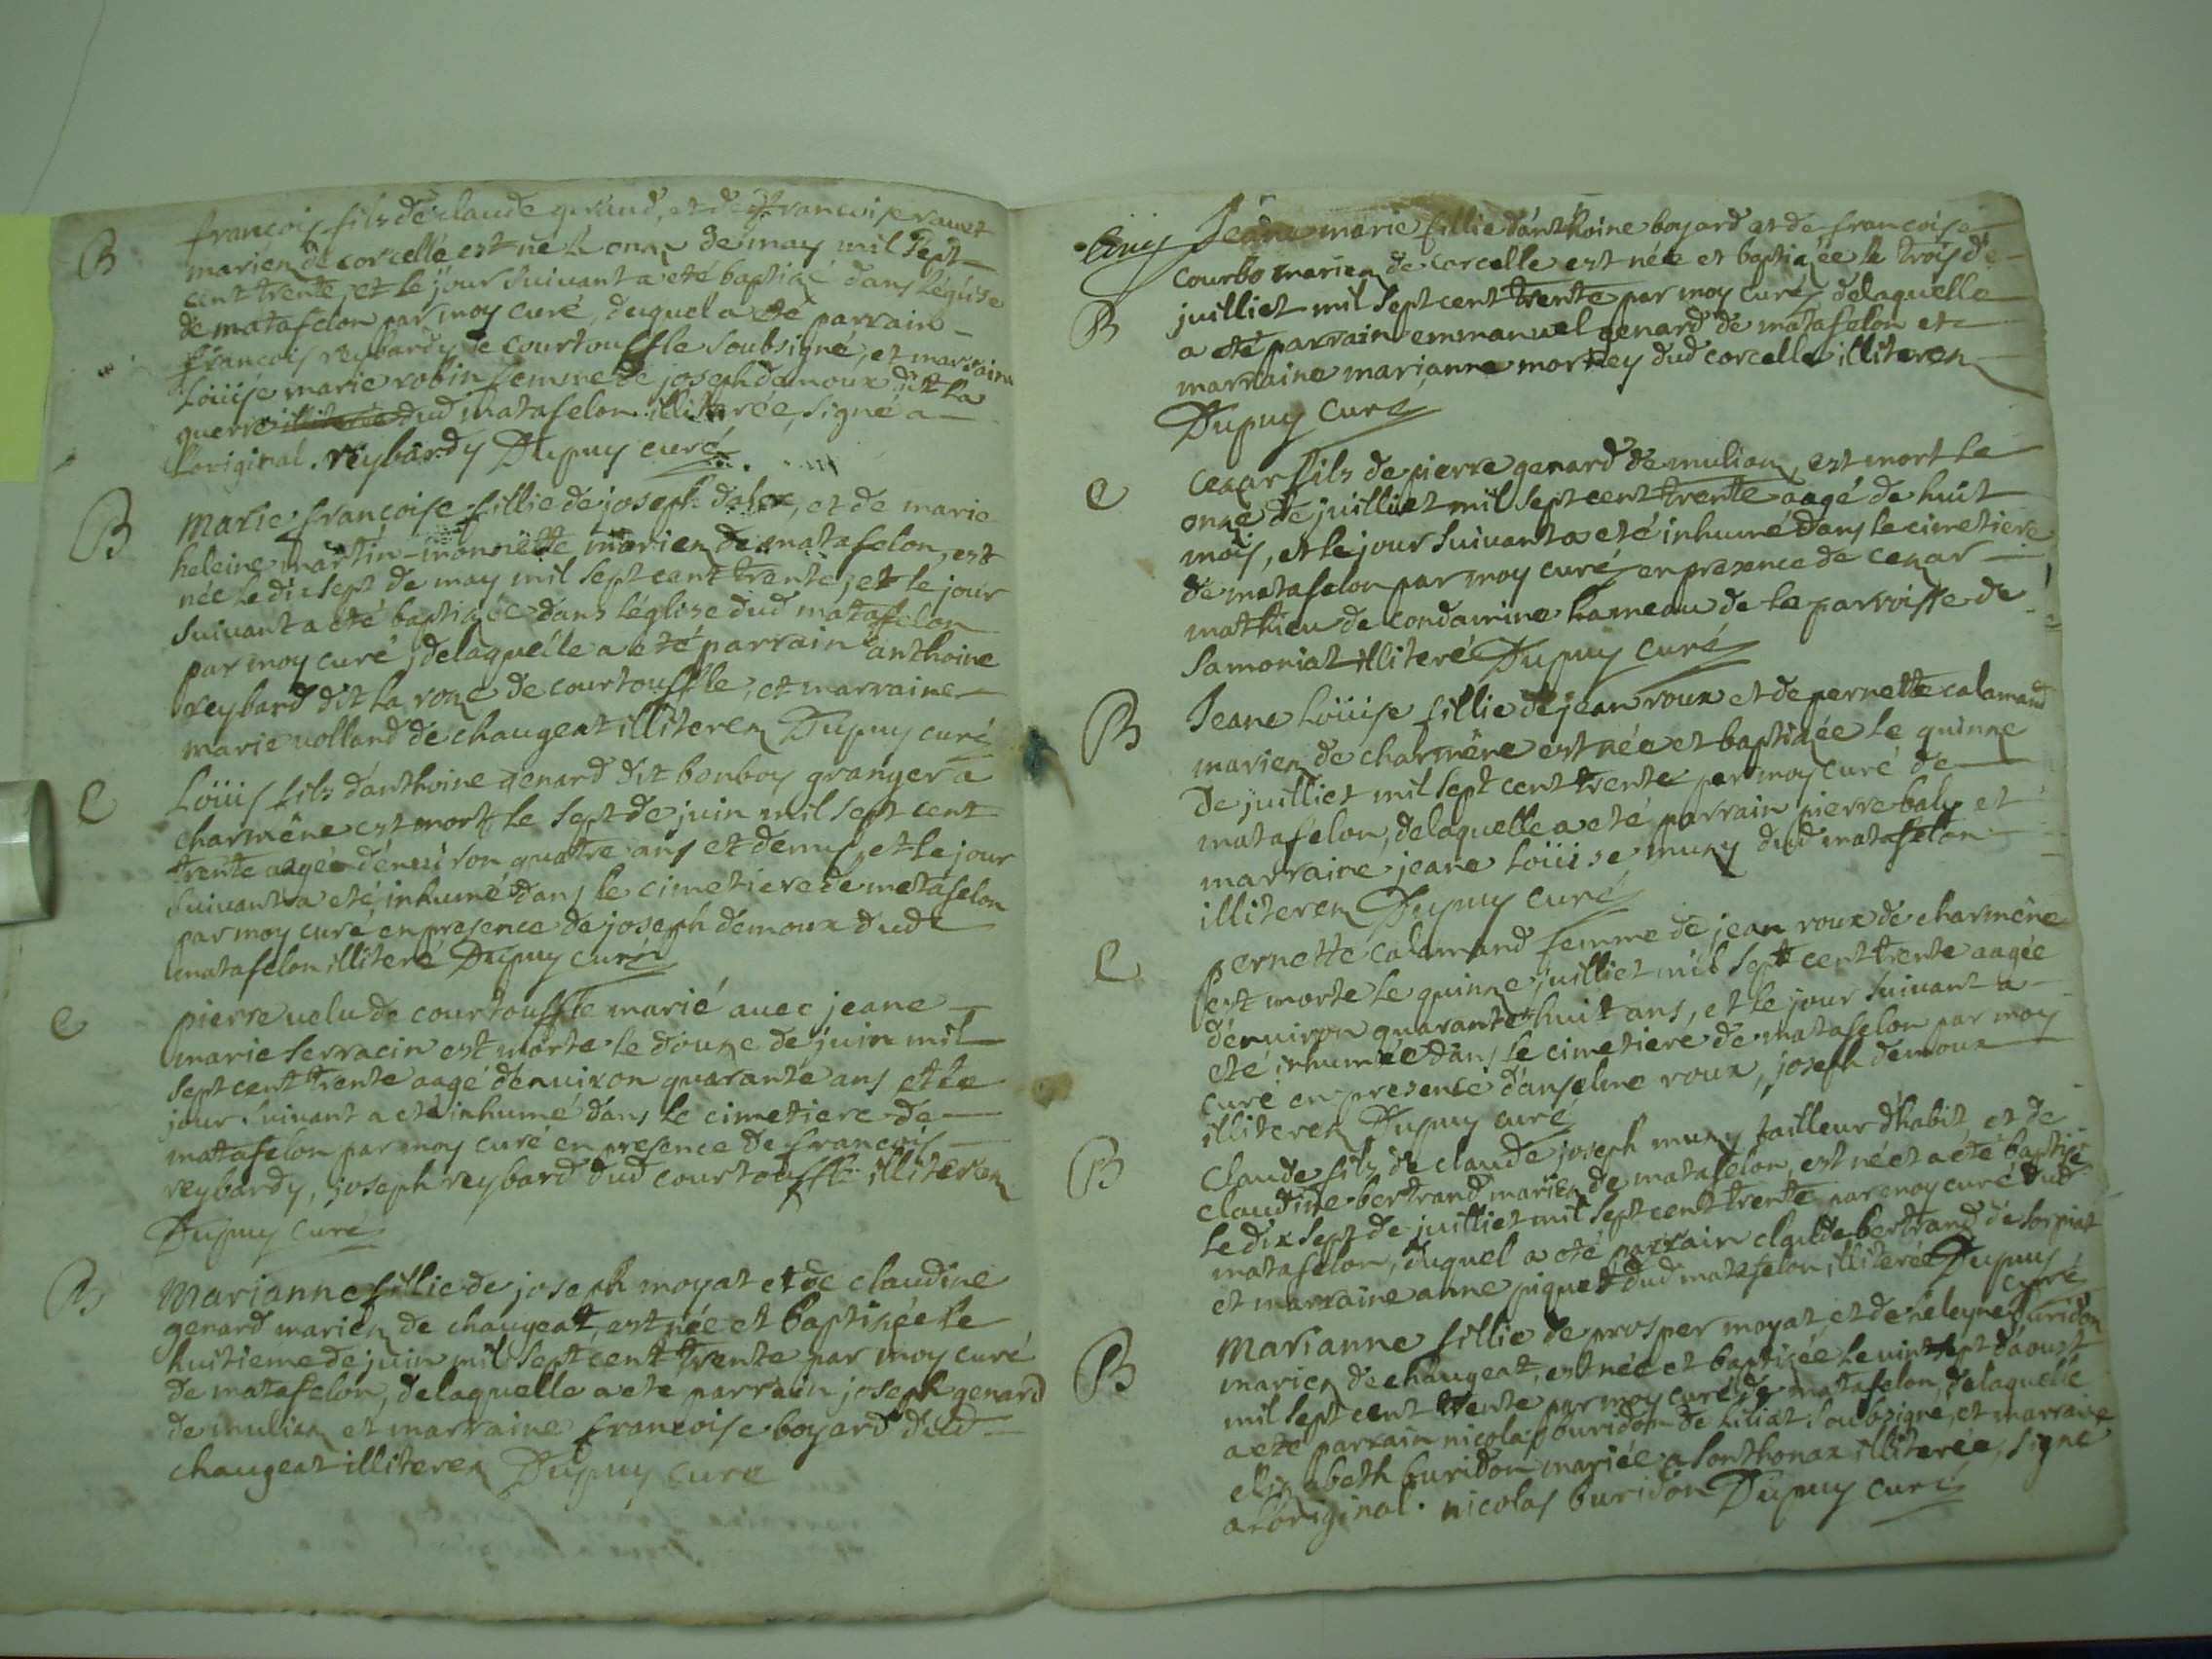 B
françois fils de claude giraud, et de françoise ravet
mariez de corcelle est né le onze de may mil sept
cent trente, et le jour suivant a eté baptizé dans léglise
de matafelon par moy curé, duquel a eté parrain
françois reybardy de courtouffle soubsigné, et marraine
Loüise marie robin femme de joseph demoux dit la
guerre dud matafelon illiterée, signé a
Loriginal. reybardy Dupuy curé
B
Marie françoise fillie de joseph et de marie
heleine martin-monnette mariez de matafelon, est
née le dix sept de may mil sept cent trente, et le jour
suivant a eté baptizée dans léglise dud matafelon
par moy curé, delaquelle a eté parrain anthoine
reybard dit la roze de courtouffle, et marraine
marie volland de chaugeat illiterez Dupuy curé
C
Loüis fils danthoine genard dit bonboy granger a
charmêne est mort le sept de juin mil sept cent
trente aagé denviron quatre ans et demy, et le jour
suivant a eté inhumé dans le cimetiere de matafelon
par moy curé en presence de joseph demoux dudt
matafelon illiteré Dupuy curé
C
pierre velu de courtouffle marié avec jeane
marie serracin est morte le douze de juin mil
sept cent trente aagé denviron quarante ans et le
jour suivant a eté inhumé dans le cimetiere de
matafelon par moy curé en presence de françois
reybardy, joseph reybard dud courtouffle illiterez
Dupuy curé
B
Marianne fillie de joseph moyat et de claudine
genard mariez de chaugeat, est née et baptizée le
huitieme de juin mil sept cent trente par moy curé
de matafelon, delaquelle a ete parrain joseph genard
de mulian et marraine françoise boyard dud
chaugeat illiterez Dupuy curé
Jeane marie fillie danthoine boyard et de françoise
courbo mariez de corcelle est née et baptizée le troy de
B
juilliet mil sept cent trente par moy curé, delaquelle
a eté parrain emmanuel genard de matafelon et
marraine marianne morney dud corcelle illiterez
Dupuy curé
C
cezar fils de pierre genard de mulian, est mort le
onze de juilliet mil sept cent trente aagé de huit
mois, et le jour suivant a eté inhumé dans le cimetiere
de matafelon par moy curé en presence de cezar
mathieu de condamine hameau de la parroisse de
samoniat illiteré Dupuy curé
B
Jeane Loüise fillie de jean roux et de pernette calamand
mariez de charmêne est née et baptizée le quinze
de juilliet mil sept cent trente par moy curé de
matafelon, delaquelle a eté parrain pierre baly et
marraine jeane Loüise muzy dud matafelon
illiterez Dupuy curé
C
pernette calamand femme de jean roux de charmêne
est morte le quinze juilliet mil sept cent trente aagée
denviron quarante huit ans, et le jour suivant a
eté inhumée dans le cimetiere de matafelon par moy
curé en presence danselme roux, joseph demoux
illiterez Dupuy curé
B
Claude fils de claude joseph muzy tailleur dhabit, et de
claudine bertrand mariez de matafelon, est né et a eté baptizé
le dix sept de juilliet mil sept cent trente par moy curé dud
matafelon, duquel a eté parrain claude bertrand de sorpiat
et marraine anne piquet dud matafelon illiterée Dupuy
curé
B
Marianne fillie de prosper moyat, et de heleyne buridon
mariez de chaugeat, est née et baptizée le vint sept daoust
mil sept cent trente par moy curé de matafelon, delaquelle
a ete parrain nicolas buridon de Liliat soubsigné, et marraine
elizabeth buridon mariée a sonthonax illiterée, signé
a Loriginal. nicolas buridon Dupuy curé